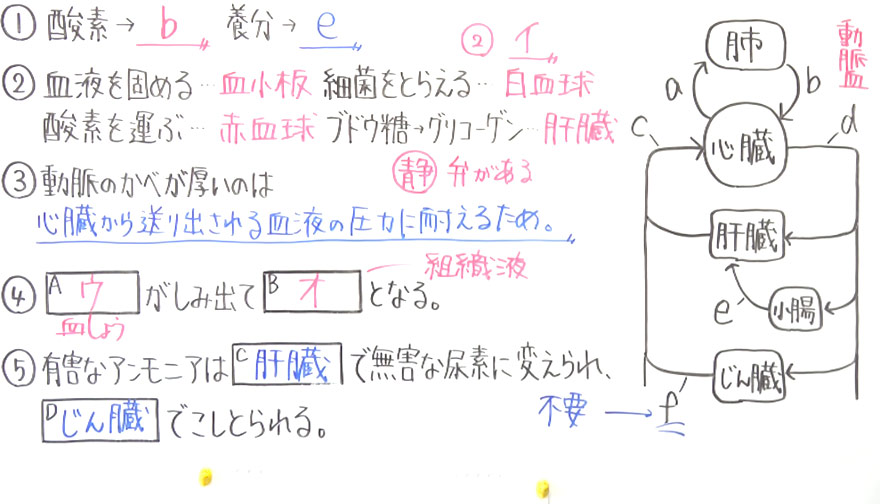 ① 酸素→ b 養分→ e
② イ
② 血液を固める…血小板 細菌をとらえる…白血球
酸素を運ぶ…赤血球 ブドウ糖→グリコーゲン…肝臓
③ 動脈のかべが厚いのは
静 弁がある
心臓から送り出される血液の圧力に耐えるため。
④ A ウ がしみ出て B オ となる。
血しょう
組織液
⑤ 有害なアンモニアは C 肝臓 で無害な尿素に変えられ、
D じん臓 でこしとられる。
不要 → f
肺
動脈血
a
b
c
心臓
d
肝臓
e
小腸
じん臓